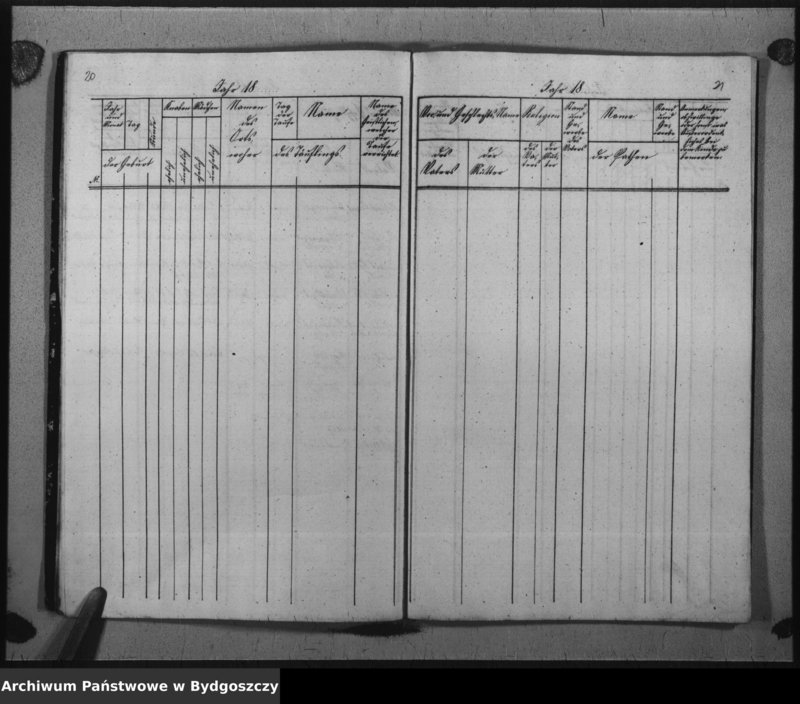 20
Jahr 18
Jahr und Monat
Tag
Stunde
Knaben
Mädchen
Namen des Orts
Tag der Taufe
Name
Name des Geistlichen, welcher die Taufe verrichtet
№
der Geburt
ehelich
unehelich
ehelich
unehelich
des Täuflings
21
Jahr 18
Vor und Geschlechts Name
Religion
Stand und Gewerbe des Vaters
Name
Stand und Gewerbe
des Vaters
der Mutter
des Vaters
der Mutter
der Pathen
Archiwum Państwowe w Bydgoszczy